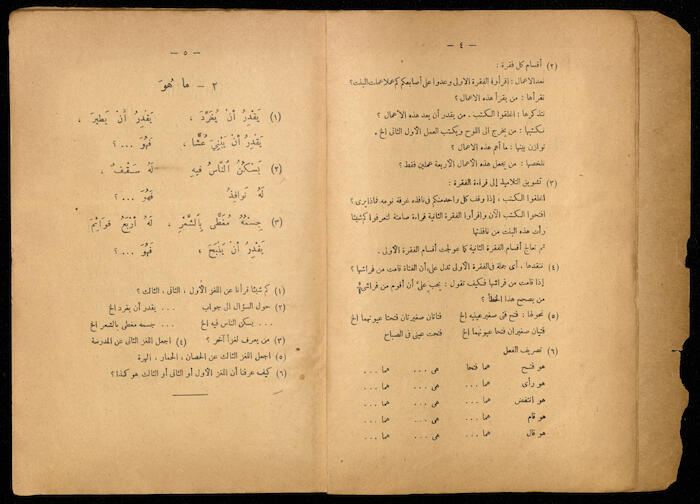 — ٤ —
(٢) أقسام كل فقرة :
نعد الاعمال : إقرأوا الفقرة الاولى وعدوا على أصابعكم كم عملا عملت البنت؟
نقرأها : من يقرأ هذه الاعمال ؟
نتذكرها : اغلقوا الكتب . من يقدر أن يعد هذه الاعمال ؟
نكتبها : من يخرج الى اللوح ويكتب العمل الاول الثانى الخ .
نوازن بينها : ما أهم هذه الاعمال ؟
نلخصها : من يجعل هذه الاعمال الأربعة عملين فقط ؟
(٣) تشويق التلاميذ إلى قراءة الفقرة :
اغلقوا الكتب ، إذا وقف كل واحد منكم فى نافذة غرفة نومه فماذا يرى ؟
افتحوا الكتب الآن واقرأوا الفقرة الثانية قراءة صامتة لتعرفوا كم شيئا
رأت هذه البنت من نافذتها
ثم تعالج أقسام الفقرة الثانية كما عولجت أقسام الفقرة الأولى .
(٤) ننقدها ، أى جملة فى الفقرة الاولى تدل على أن الفتاة قامت من فراشها ؟
إذا قامت من فراشها فكيف تقول : يجب علىّ أن أقوم من فراشى ؟
من يصحح هذا الخطأ ؟
(٥) نحولها : فتح فتى صغير عينيه الخ فتاتان صغيرتان فتحتا عيونهما الخ
فتيان صغيران فتحا عيونهما الخ فتحت عينى فى الصباح
(٦) تصريف الفعل
هو فتح هما فتحا هى ... هما ...
هو رأى هما ... هى ... هما ...
هو انتفض هما ... هى ... هما ...
هو قام هما ... هى ... هما ...
هو قال هما ... هى ... هما ...
— ٥ —
٢ - ما هُوَ
(١) يَقْدِرُ أَنْ يُغَرِّدَ ، يَقْدِرُ أَنْ يَطِيرَ ،
يَقْدِرُ أَنْ يَبْنِيَ عُشًّا ، فَهُوَ ... ؟
(٢) يَسْكُنُ النَّاسُ فِيهِ لَهُ سَقْفٌ ،
لَهُ نَوَافِذُ فَهُوَ ... ؟
(٣) جِسْمُهُ مُغَطًّى بِالشَّعْرِ ، لَهُ أَرْبَعُ قَوَائِمَ
يَقْدِرُ أَنْ يَنْبَحَ ، فَهُوَ ... ؟
(١) كم شيئا قرأنا عن اللغز الأول ، الثانى ، الثالث ؟
(٢) حول السؤال الى جواب ... يقدر أن يغرد الخ
... يسكن الناس فيه الخ ... جسمه مغطى بالشعر الخ
(٣) من يعرف لغزاً آخر ؟ (٤) اجعل اللغز الثانى عن المدرسة
(٥) اجعل اللغز الثالث عن الحصان ، الحمار ، الهرة
(٦) كيف عرفنا أن اللغز الأول أو الثانى أو الثالث هو كذا ؟